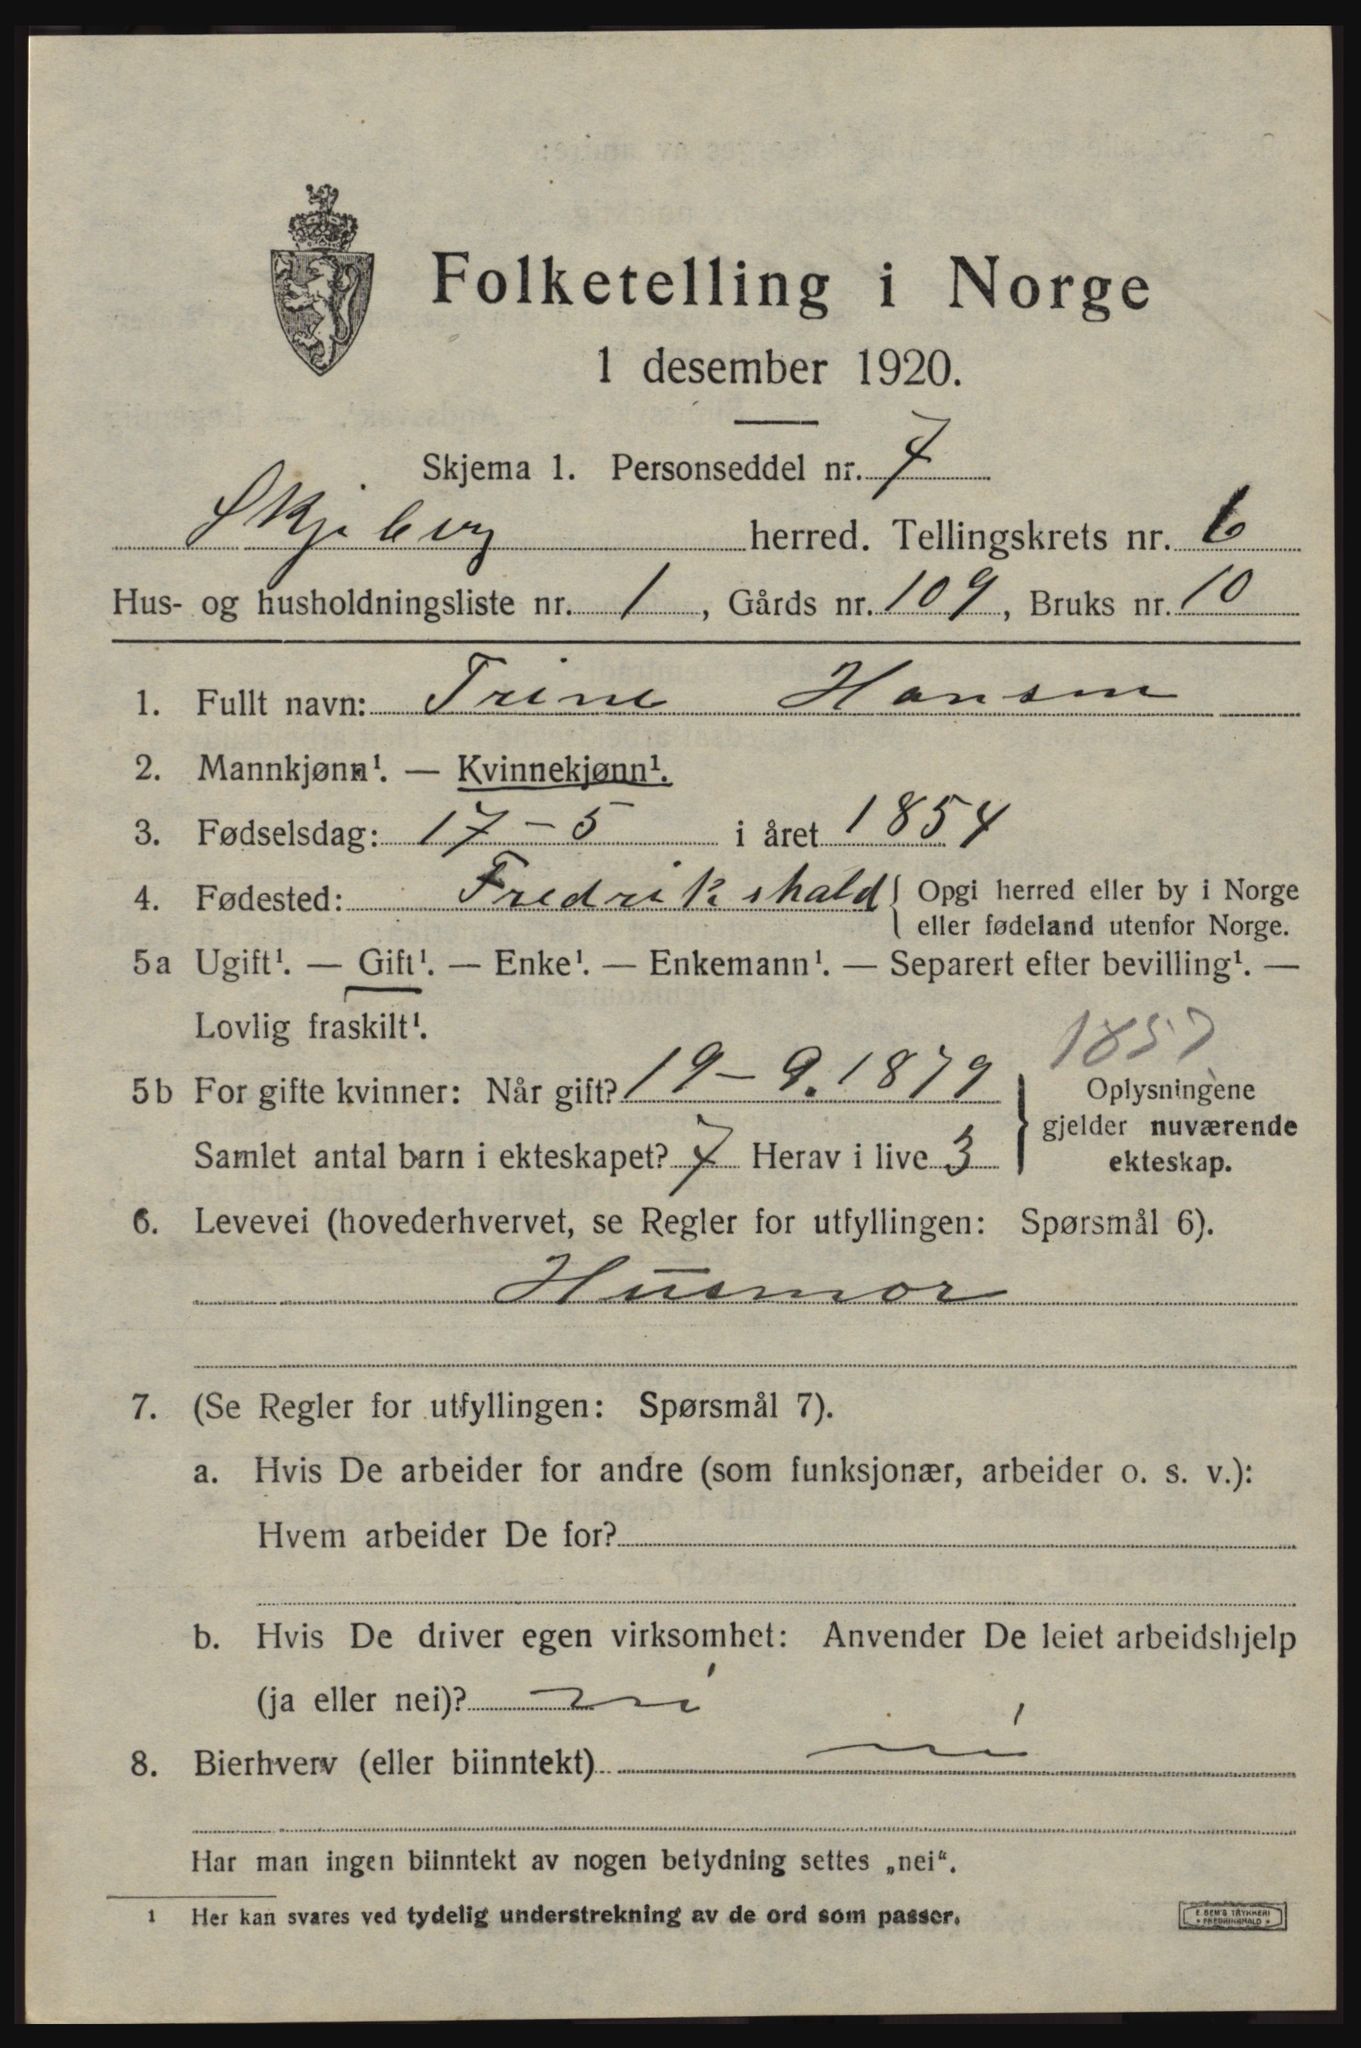 Folketelling i Norge
1 desember 1920.
Skjema 1. Personseddel nr. 7
Skjeberg herred. Tellingskrets nr. 6
Hus- og husholdningsliste nr. 1, Gårds nr. 109, Bruks nr. 10
1. Fullt navn: Trine Hansen
2. Mannkjønn¹. — Kvinnekjønn¹.
3. Fødselsdag: 17 - 5 i året 1854
4. Fødested: Fredrikshald { Opgi herred eller by i Norge
eller fødeland utenfor Norge.
5a Ugift¹. — Gift¹. — Enke¹. — Enkemann¹. — Separert efter bevilling¹. —
Lovlig fraskilt¹.
1857
5b For gifte kvinner: Når gift? 19 - 9. 1879 } Oplysningene
gjelder nuværende
Samlet antal barn i ekteskapet? 7 Herav i live 3
ekteskap.
6. Levevei (hovederhvervet, se Regler for utfyllingen: Spørsmål 6).
Husmor
7. (Se Regler for utfyllingen: Spørsmål 7).
a. Hvis De arbeider for andre (som funksjonær, arbeider o. s. v.):
Hvem arbeider De for?
b. Hvis De driver egen virksomhet: Anvender De leiet arbeidshjelp
(ja eller nei)? nei
8. Bierhverv (eller biinntekt) nei
Har man ingen biinntekt av nogen betydning settes „nei“.
1 Her kan svares ved tydelig understrekning av de ord som passer.
E. SEM'S TRYKKERI
* FREDRIKSHALD *